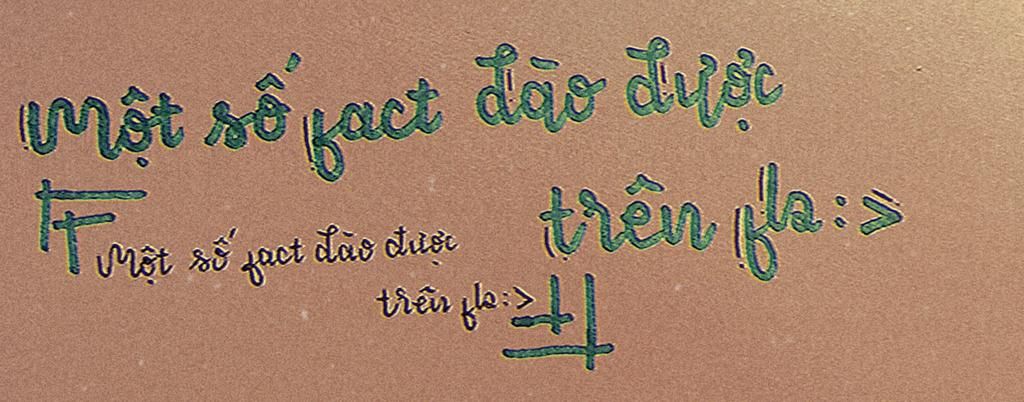 Một số fact đào được
trên fla:>
Một số fact đào được
trên fla:>